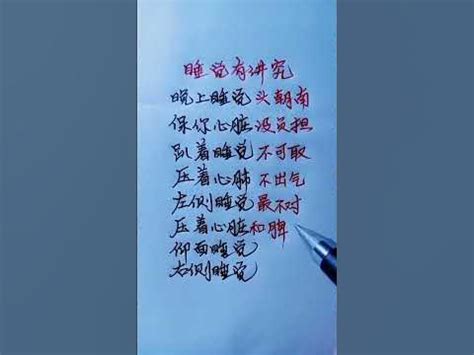 睡觉有讲究
晚上睡觉头朝南
保你心脏没负担
趴着睡觉不可取
压着心肺不出气
左侧睡觉最不对
压着心脏和脾
仰面睡觉
右侧睡觉